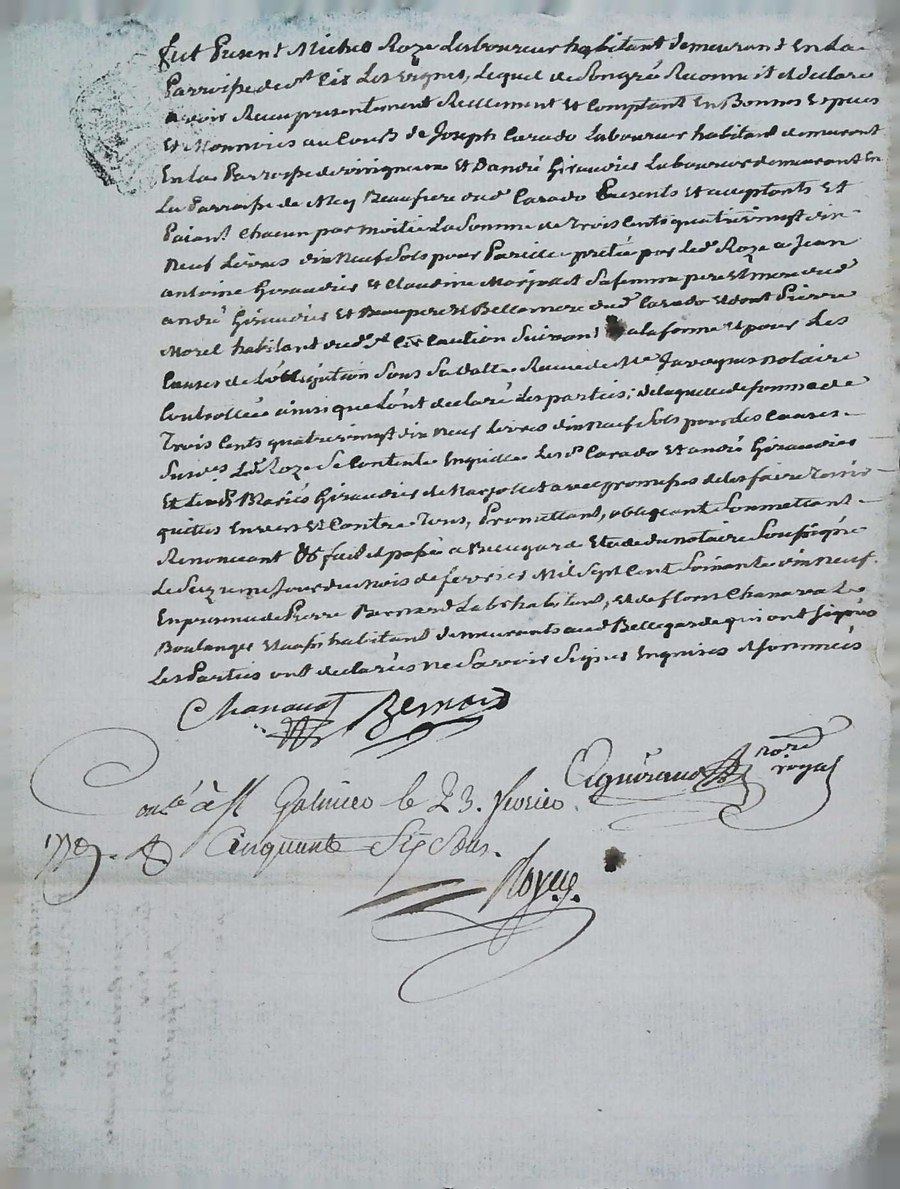 Fut Present Michel Roze Laboureur habitant demeurant En La
Parroisse de st Cir Les vignes, Lequel de son gré Reconnoit et declare
avoir Receu presentement Reellement et Comptant En Bonnes Espèces
Et Monnoies au Cours de Joseph Carado Laboureur habitant demeurant
En la Parroisse de virigneux Et D'andré Giraudier Laboureur demeurant En
La Parroisse de Beaufrere dud Carado Presents et acceptants Et
Paiant Chacun par moitié La Somme de trois Cents quatrevingt dix
Neuf Livres dix Neuf Sols pour Pareille pretée par Led Roze a Jean
antoine Giraudier et Claudine Marjollet Sa femme pere et mere dud
andré Giraudier Et Beaupere et Bellemere dud Carado et dont Pierre
Morel habitant dud st Cir Caution Suivant a la forme et pour Les
Causes de L'obligation Sous Sa datte Receue de Me Javogues Notaire
Controllée ainsi que L'ont declaré Les parties; de laquelle de somme de
Trois Cents quatrevingt dix Neuf Livres dix neuf Sols pour les Causes
Susdes Led Roze Se Contente En quitte Lesd Carado Et andré Giraudier
Et Lesd Mariés Giraudier et Marjollet avec promesses de les faire tenir
quittes Envers et Contre Tous, Promettant, obligeant Soumettant
Renonceant fait et passé a Bellegard Etude du notaire Soussigné
Le Seizieme Jour du Mois de fevrier Mil Sept Cent Soixante dix neuf.
En presence de Pierre Bernard habitant, et de Chanavat
Boulanger Et aussi habitant demeurants aud Bellegarde qui ont signés
Les Parties ont declarées ne Savoir Signer Enquises et sommées
Chanavat Bernard
nore
royal
Conlé à St Galmier le 23. fevrier
1779. Cinquante Six Sous.